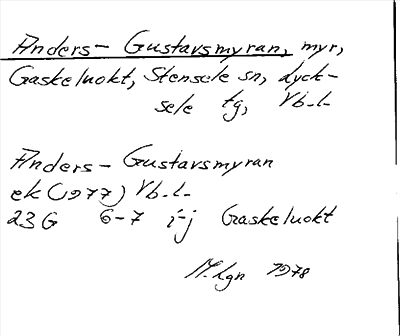 Anders-Gustavsmyran, myr,
Gaskeluokt, Stensele sn, Lyck-
sele tg, Vb.l.
Anders-Gustavsmyran
ek (1977) Vb.l.
23G 6-7 i-j Gaskeluokt
M.Lgn 1978